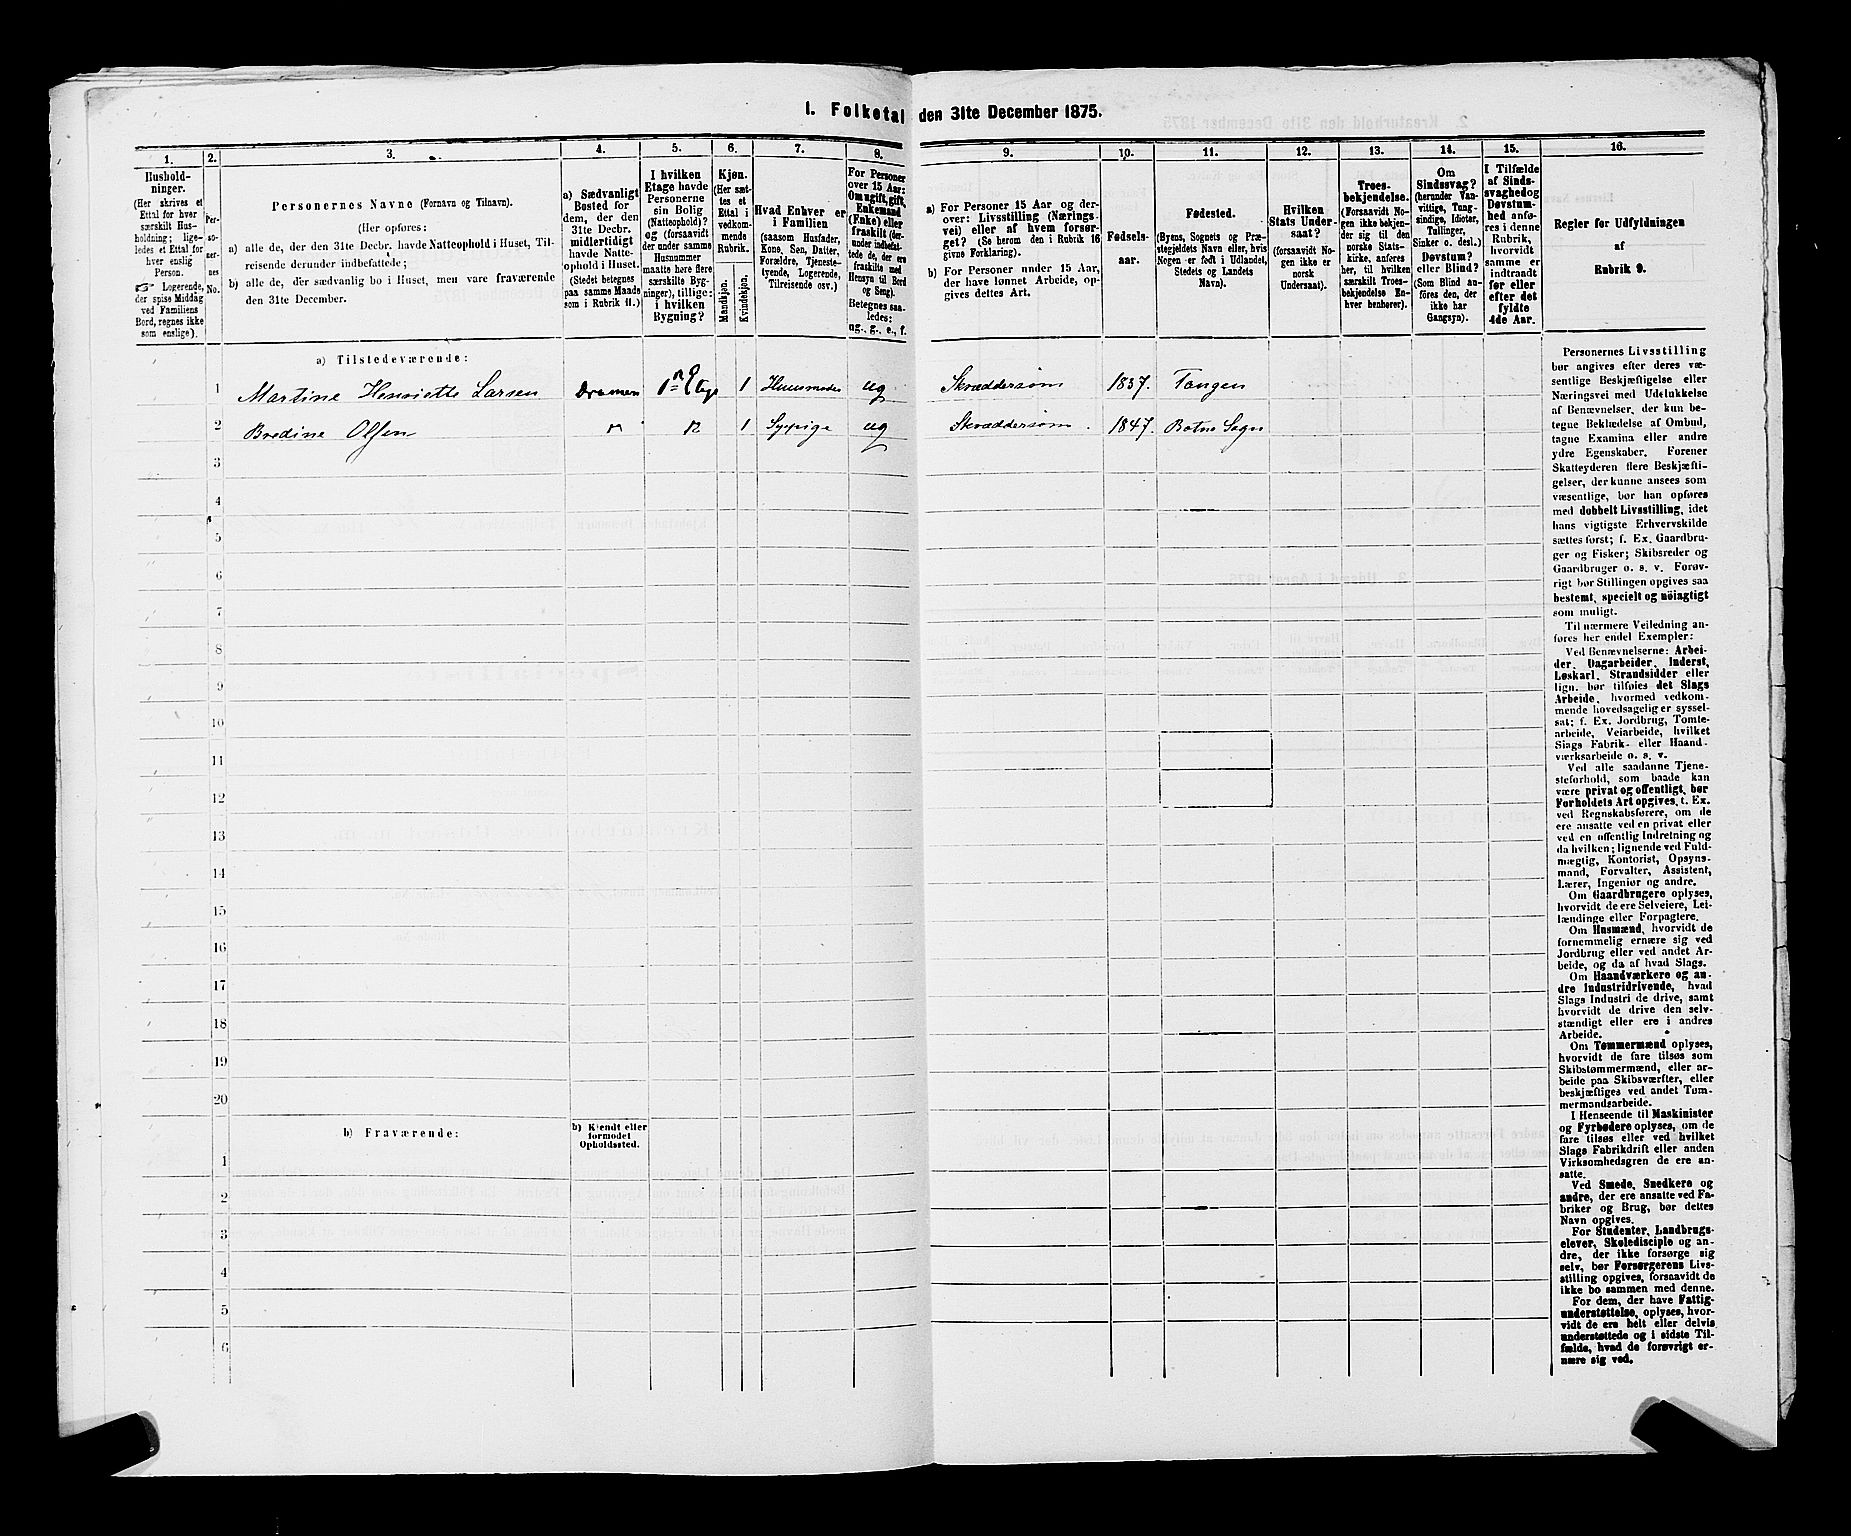 I. Folketal den 31te December 1875.
1.
2.
3.
4.
5.
6.
7.
8.
9.
10.
11.
12.
13.
14.
15.
16.
Hushold-
ninger.
(Her skrives et
Ettal for hver
særskilt Hus-
holdning; lige-
ledes et Ettal for
hver enslig
Person.
☞ Logerende,
der spise Middag
ved Familiens
Bord, regnes ikke
som enslige).
Per-
so-
ner-
nes
No.
Personernes Navne (Fornavn og Tilnavn).
(Her opføres:
a) alle de, der den 31te Decbr. havde Natteophold i Huset, Til-
reisende derunder indbefattede;
b) alle de, der sædvanlig bo i Huset, men vare fraværende
den 31te December.
a) Sædvanligt
Bosted for
dem, der den
31te Decbr.
midlertidigt
havde Natte-
ophold i Huset.
(Stedet betegnes
paa samme Maade
som i Rubrik 11.)
I hvilken
Etage havde
Personerne
sin Bolig
(Natteophold)?
og (forsaavidt
der under samme
Husnummer
maatte høre flere
særskilte Byg-
ninger), tillige:
i hvilken
Bygning?
Kjøn.
(Her sæt-
tes et
Ettal i
vedkom-
mende
Rubrik.
Mandkjøn.
Kvindekjøn.
Hvad Enhver er
i Familien
(saasom Husfader,
Kone, Søn, Datter,
Forældre, Tjeneste-
tyende, Logerende,
Tilreisende osv.)
For Personer
over 15 Aar:
Om ugift, gift,
Enkemand
(Enke) eller
fraskilt (der-
under indbefat-
tede de, der ere
fraskilte med
Hensyn til Bord
og Seng).
Betegnes saa-
ledes:
ug., g., e., f.
a) For Personer 15 Aar og der-
over: Livsstilling (Nærings-
vei) eller af hvem forsør-
get? (Se herom den i Rubrik 16
givne Forklaring).
b) For Personer under 15 Aar,
der have lønnet Arbeide, op-
gives dettes Art.
Fødsels-
aar.
Fødested.
(Byens, Sognets og Præ-
stegjeldets Navn eller, hvis
Nogen er født i Udlandet,
Stedets og Landets
Navn).
Hvilken
Stats Under-
saat?
(forsaavidt No-
gen ikke er
norsk
Undersaat).
Troes-
bekjendelse.
(Forsaavidt No-
gen ikke bekjen-
der sig til den
norske Stats-
kirke, anføres
her, til hvilken
særskilt Troes-
bekjendelse En-
hver henhører).
Om
Sindssvag?
(herunder Van-
vittige, Tung-
sindige, Idioter,
Tullinger,
Sinker o. desl.)
Døvstum?
eller Blind?
(Som Blind an-
føres den, der
ikke har
Gangsyn).
I Tilfælde
af Sinds-
svaghed og
Døvstum-
hed anfø-
res i denne
Rubrik,
hvorvidt
samme er
indtraadt
før eller
efter det
fyldte
4de Aar.
Regler for Udfyldningen
af
Rubrik 9.
a) Tilstedeværende:
1 Martine Henriette Larsen Dramen 1ⁿ Etage 1 Huusmoder ug Skræddersøm 1837. Tangen
2 Bredine Olsen " " 1 Sypige ug Skræddersøm. 1847. Botne Sogn
3
4
5
6
7
8
9
10
11
12
13
14
15
16
17
18
19
20
b) Fraværende:
b) Kjendt eller
formodet
Opholdssted.
1
2
3
4
5
6
Personernes Livsstilling
bør angives efter deres væ-
sentlige Beskjæftigelse eller
Næringsvei med Udelukkelse
af Benævnelser, der kun be-
tegne Beklædelse af Ombud,
tagne Examina eller andre
ydre Egenskaber. Forener
Skatteyderen flere Beskjæfti-
gelser, der kunne ansees som
væsentlige, bør han opføres
med dobbelt Livsstilling, idet
hans vigtigste Erhvervskilde
sættes først; f. Ex. Gaardbru-
ger og Fisker; Skibsreder og
Gaardbruger o. s. v. Forøv-
rigt bør Stillingen opgives saa
bestemt, specielt og nøiagtigt
som muligt.
Til nærmere Veiledning an-
føres her endel Exempler:
Ved Benævnelserne: Arbei-
der, Dagarbeider, Inderst,
Løskarl, Strandsidder eller
lign. bør tilføies det Slags
Arbeide, hvormed vedkom-
mende hovedsagelig er syssel-
sat; f. Ex. Jordbrug, Tomte-
arbeide, Veiarbeide, hvilket
Slags Fabrik- eller Haand-
værksarbeide o. s. v.
Ved alle saadanne Tjene-
steforhold, som baade kan
være privat og offentligt, bør
Forholdets Art opgives, t. Ex.
ved Regnskabsførere, om de
ere ansatte ved en privat eller
ved en offentlig Indretning og
da hvilken; lignende ved Fuld-
mægtig, Kontorist, Opsyns-
mand, Forvalter, Assistent,
Lærer, Ingeniør og andre.
Om Gaardbrugere oplyses,
hvorvidt de ere Selveiere, Lei-
lændinge eller Forpagtere.
Om Husmænd, hvorvidt de
fornemmelig ernære sig ved
Jordbrug eller ved andet Ar-
beide, og da af hvad Slags.
Om Haandværkere og an-
dre Industridrivende, hvad
Slags Industri de drive, samt
hvorvidt de drive den selv-
stændigt eller ere i andres
Arbeide.
Om Tømmermænd oplyses,
hvorvidt de fare tilsøs som
Skibstømmermænd, eller ar-
beide paa Skibsværfter, eller
beskjæftiges ved andet Tøm-
mermandsarbeide.
I Henseende til Maskinister
og Fyrbødere oplyses, om de
fare tilsøs eller ved hvilket
Slags Fabrikdrift eller anden
Virksomhedsgren de ere an-
satte.
Ved Smede, Snedkere og
andre, der ere ansatte ved Fa-
briker og Brug, bør dettes
Navn opgives.
For Studenter, Landbrugs-
elever, Skoledisciple og an-
dre, der ikke forsørge sig
selv, bør Forsørgerens Livs-
stilling opgives, forsaavidt de
ikke bo sammen med denne.
For dem, der have Fattig-
understøttelse, oplyses, hvor-
vidt de ere helt eller delvis
understøttede og i sidste Til-
fælde, hvad de forøvrigt er-
nære sig ved.